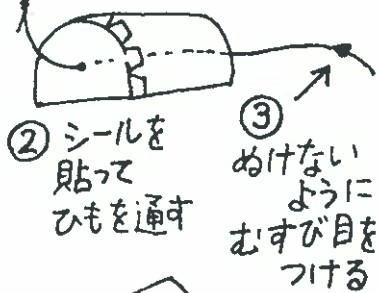 ② シールを
貼って
ひもを通す
③
ぬけない
ように
むすび目を
つける